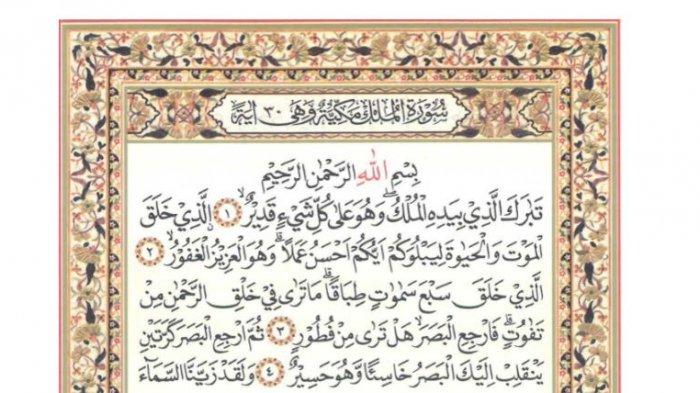 سُورَةُ الْمُلْكِ مَكِّيَّةٌ وَهِيَ ٣٠ اٰيَةً
بِسْمِ اللّٰهِ الرَّحْمٰنِ الرَّحِيْمِ
تَبَارَكَ الَّذِيْ بِيَدِهِ الْمُلْكُۖ وَهُوَ عَلٰى كُلِّ شَيْءٍ قَدِيْرٌۙ ١ اَلَّذِيْ خَلَقَ
الْمَوْتَ وَالْحَيٰوةَ لِيَبْلُوَكُمْ اَيُّكُمْ اَحْسَنُ عَمَلًاۗ وَهُوَ الْعَزِيْزُ الْغَفُوْرُۙ ٢
الَّذِيْ خَلَقَ سَبْعَ سَمٰوٰتٍ طِبَاقًاۗ مَا تَرٰى فِيْ خَلْقِ الرَّحْمٰنِ مِنْ
تَفٰوُتٍۗ فَارْجِعِ الْبَصَرَۙ هَلْ تَرٰى مِنْ فُطُوْرٍ ٣ ثُمَّ ارْجِعِ الْبَصَرَ كَرَّتَيْنِ
يَنْقَلِبْ اِلَيْكَ الْبَصَرُ خَاسِئًا وَّهُوَ حَسِيْرٌ ٤ وَلَقَدْ زَيَّنَّا السَّمَاۤءَ